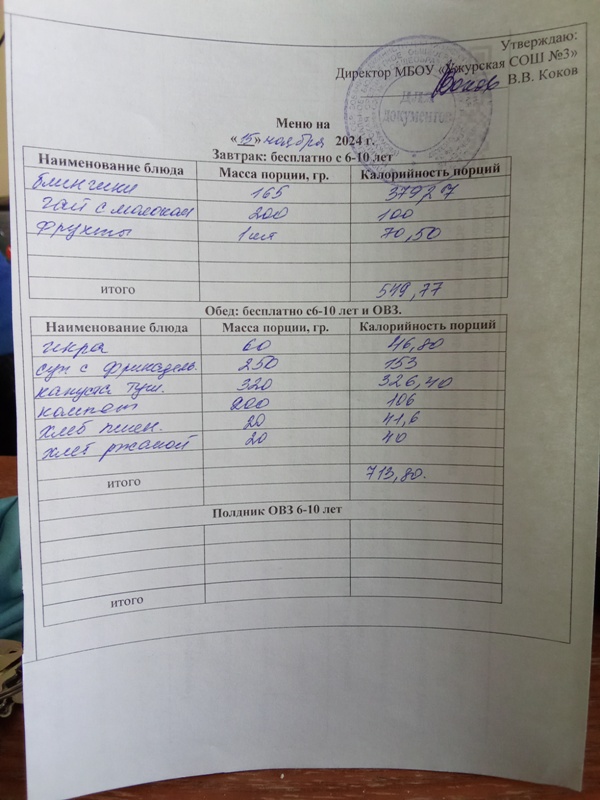 Утверждаю:
Директор МБОУ «Ужурская СОШ №3»
В.В. Коков
для документов
Меню на
«15» ноября 2024 г.
Завтрак: бесплатно с 6-10 лет
Наименование блюда Масса порции, гр. Калорийность порций
блинчики 165 379,27
чай с молоком 200 100
фрукты 1 шт 70,50
итого 549,77
Обед: бесплатно с6-10 лет и ОВЗ.
Наименование блюда Масса порции, гр. Калорийность порций
икра 60 46,80
суп с фрикадель. 250 153
капуста туш. 320 326,40
компот 200 106
хлеб пшен. 20 41,6
хлеб ржаной 20 40
итого 713,80.
Полдник ОВЗ 6-10 лет
итого